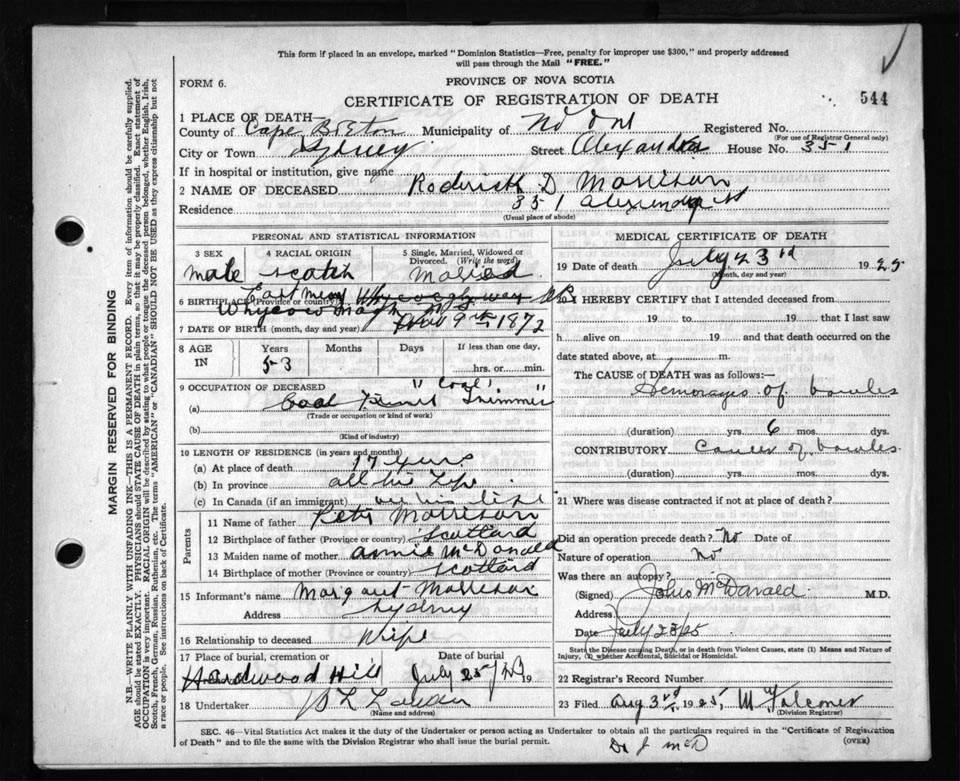 This form if placed in an envelope, marked "Dominion Statistics—Free, penalty for improper use $300," and properly addressed
will pass through the Mail "FREE."
FORM 6.
PROVINCE OF NOVA SCOTIA
CERTIFICATE OF REGISTRATION OF DEATH
544
1 PLACE OF DEATH—
County of Cape Breton Municipality of Registered No.
(For use of Registrar General only)
City or Town Sydney Street Alexandra House No. 351
If in hospital or institution, give name
2 NAME OF DECEASED Roderick D. Morrison
Residence 351 Alexandra St
(Usual place of abode)
PERSONAL AND STATISTICAL INFORMATION
3 SEX male
4 RACIAL ORIGIN scotch
5 Single, Married, Widowed or Divorced. (Write the word) Married
6 BIRTHPLACE (Province or country)
Whycocomagh N.S.
7 DATE OF BIRTH (month, day and year) 9th 1872
8 AGE IN Years 53 Months Days If less than one day, hrs. or min.
9 OCCUPATION OF DECEASED "Coal
(a) Coal Trimmer"
(Trade or occupation or kind of work)
(b)
(Kind of industry)
10 LENGTH OF RESIDENCE (in years and months)
(a) At place of death 17 years
(b) In province all his life
(c) In Canada (if an immigrant) all his life
Parents
11 Name of father Peter Morrison
12 Birthplace of father (Province or country) Scotland
13 Maiden name of mother Annie McDonald
14 Birthplace of mother (Province or country) Scotland
15 Informant's name Margaret Morrison
Address Sydney
16 Relationship to deceased Wife
17 Place of burial, cremation or Date of burial
Hardwood Hill July 25 19
18 Undertaker
(Name and address)
MEDICAL CERTIFICATE OF DEATH
19 Date of death July 23rd 1925
(Month, day and year)
I HEREBY CERTIFY that I attended deceased from
19 to 19 that I last saw
h alive on 19 and that death occurred on the
date stated above, at m.
The CAUSE of DEATH was as follows:—
Hemorages of bowles
(duration) yrs. 6 mos. dys.
CONTRIBUTORY Cancer of bowles
(duration) yrs. mos. dys.
21 Where was disease contracted if not at place of death?
Did an operation precede death? No Date of
Nature of operation No
Was there an autopsy?
(Signed) John McDonald M.D.
Address
Date July 25/25
State the Disease causing Death, or in death from Violent Causes, state (1) Means and Nature of
Injury, (2) whether Accidental, Suicidal or Homicidal.
22 Registrar's Record Number
23 Filed Aug 3rd 1925, M Falconer
(Division Registrar)
SEC. 46—Vital Statistics Act makes it the duty of the Undertaker or person acting as Undertaker to obtain all the particulars required in the "Certificate of Registration
of Death" and to file the same with the Division Registrar who shall issue the burial permit.
(OVER)
Dr J McD
MARGIN RESERVED FOR BINDING
N.B.—WRITE PLAINLY WITH UNFADING INK—THIS IS A PERMANENT RECORD. Every item of information should be carefully supplied.
AGE should be stated EXACTLY. PHYSICIANS should STATE CAUSE OF DEATH in plain terms, so that it may be properly classified. Exact statement of
OCCUPATION is very important. RACIAL ORIGIN will be described by stating to what people or tongue the deceased person belonged, whether English, Irish,
Scotch, French, German, Russian, Ruthenian, etc. The terms "AMERICAN" or "CANADIAN" SHOULD NOT BE USED as they express citizenship but not
a race or people. See instructions on back of Certificate.